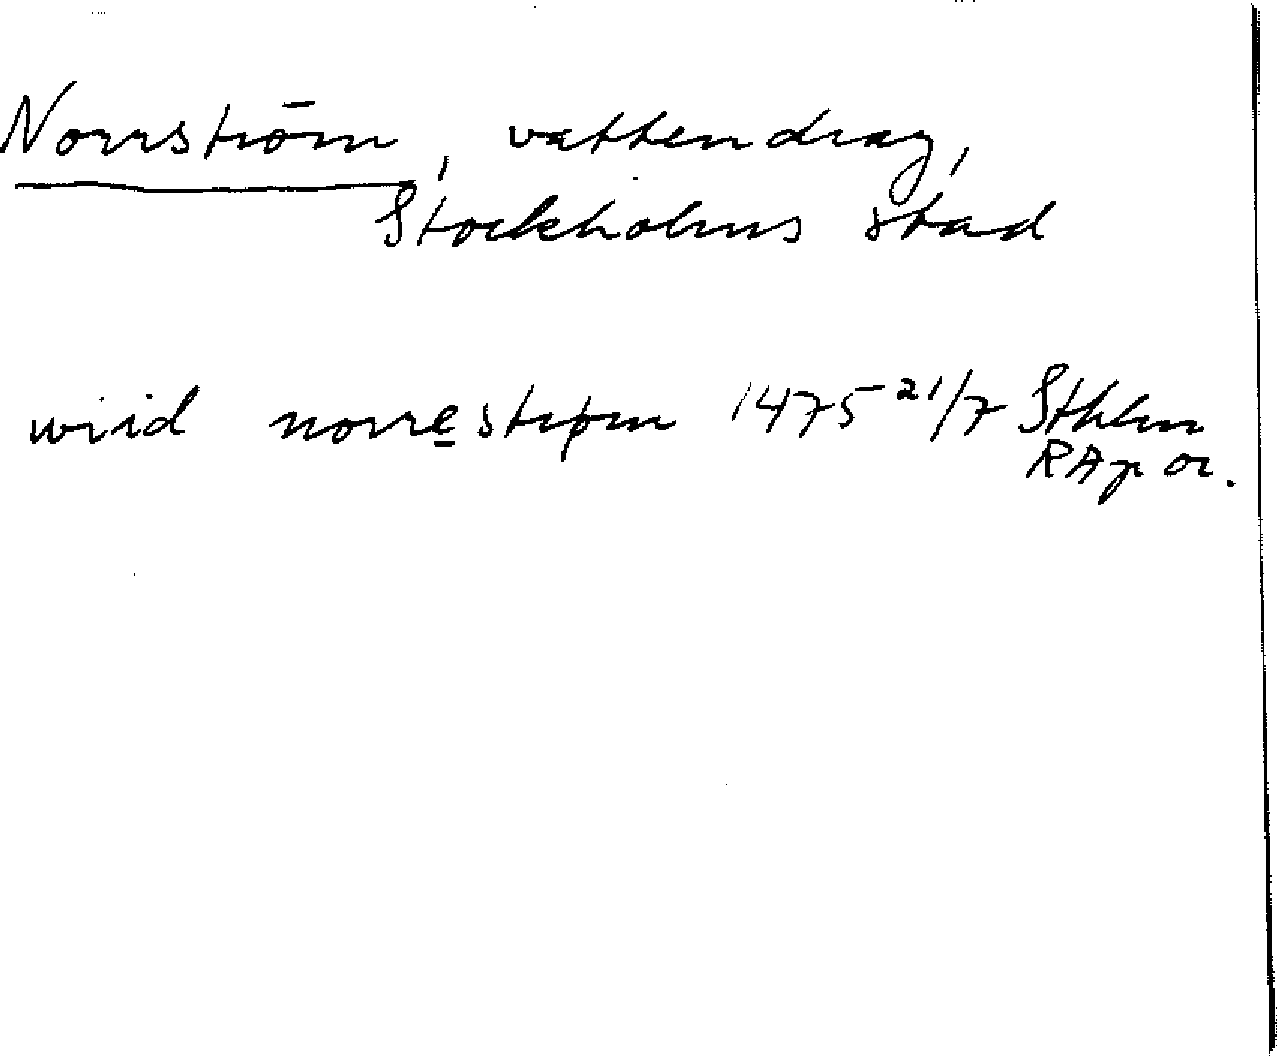 Norrström, vattendrag,
Stockholms stad
wiid norrestrøm 1475 21/7 Sthlm
RAp or.